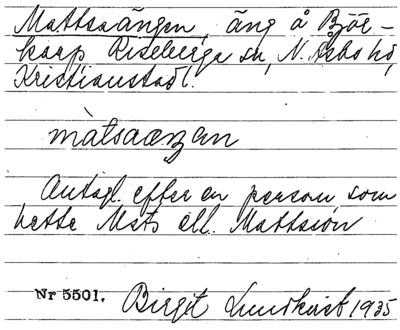 Mattsaängen, äng å Björ-
karp Riseberga sn, N. Åsbo hd,
Kristianstad l.
màtsaæŋen
Antagl. efter en person som
hette Mats ell. Mattson
Nr 5501. Birgit Lundkvist 1935